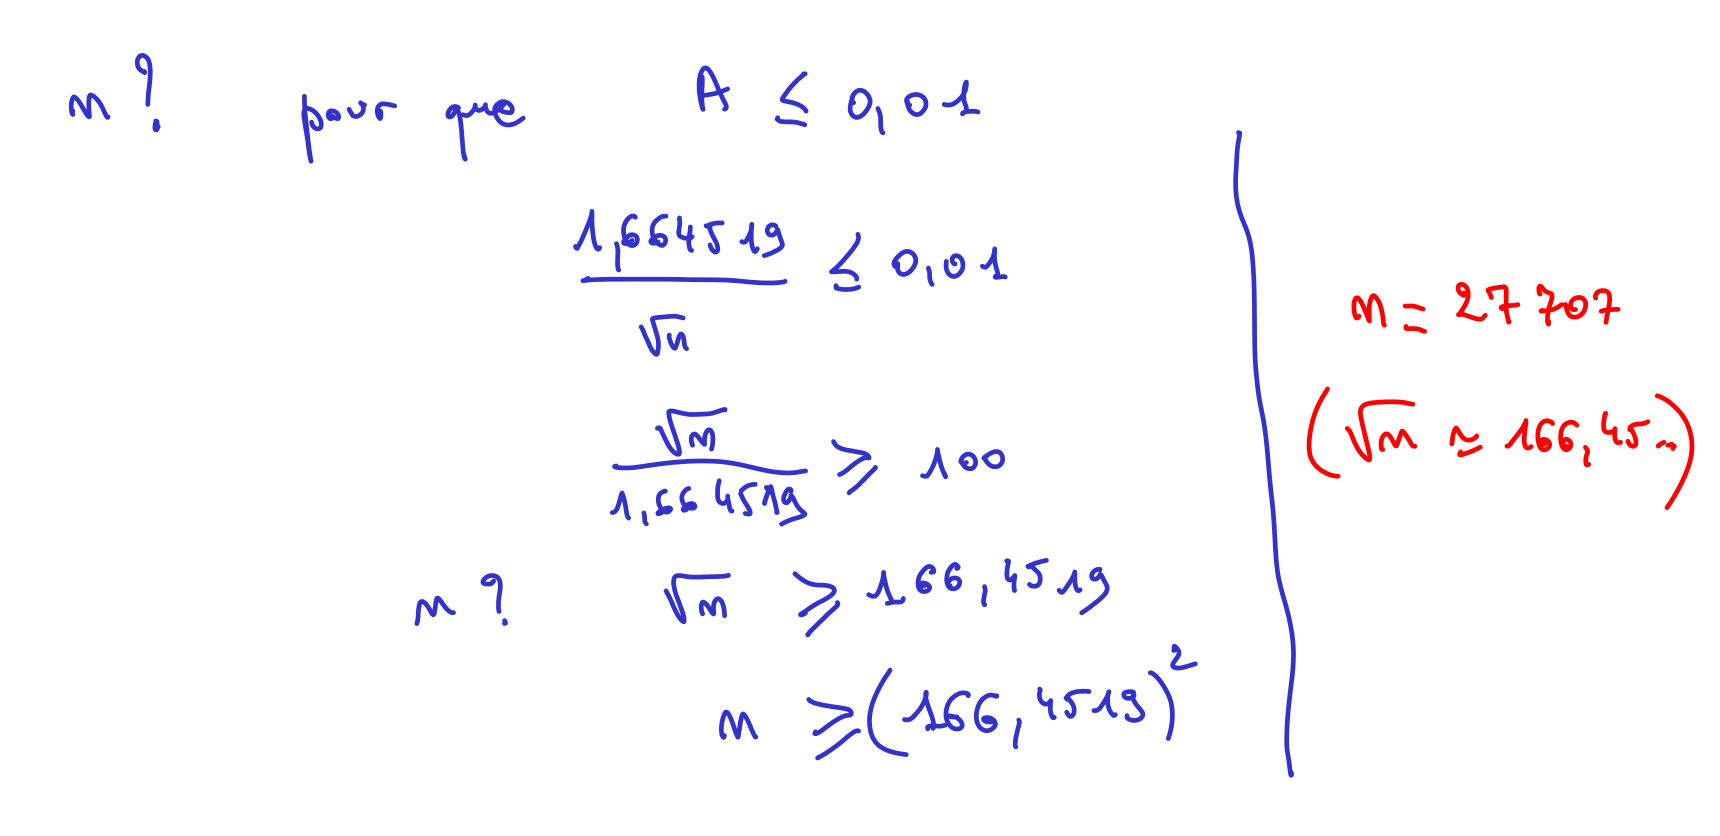 n? pour que A ≤ 0,01
1,664519 / √n ≤ 0,01
√n / 1,664519 ≥ 100
n? √n ≥ 166,4519
n ≥ (166,4519)²
n = 27 707
(√n ≈ 166,45...)